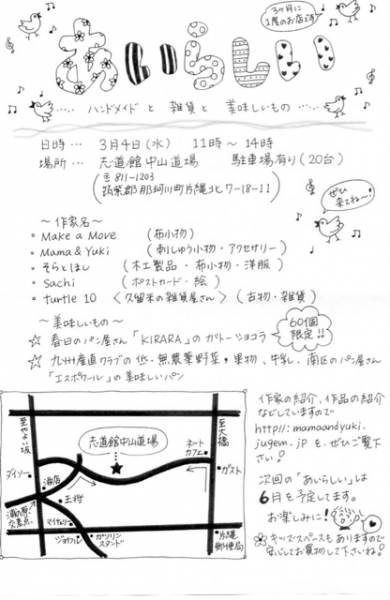 3ヶ月に
1度のお店です
あいらしい
ハンドメイド と 雑貨 と 美味しいもの
日時 … 3月4日(水) 11時～14時
場所 … 志道館 中山道場 駐車場有り(20台)
〒811-1203
筑紫郡那珂川町片縄北7-18-11
ぜひ
来てね～!
～作家名～
・Make a Move (布小物)
・Mama & Yuki (刺しゅう小物・アクセサリー)
・そらとほし (木工製品・布小物・洋服)
・Sachi (ポストカード・絵)
・turtle 10 <久留米の雑貨屋さん> (古物・雑貨)
～美味しいもの～
60個
限定!!
☆ 春日のパン屋さん「KIRARA」のガトーショコラ
☆ 九州産直クラブの低・無農薬野菜、果物、牛乳、南区のパン屋さん
「エスポワール」の美味しいパン
至やよい坂
志道館中山道場
至大橋
ネット
カフェ
ガスト
ダイソー
王将
交差点
ジョイフル
ガソリン
スタンド
片縄
郵便局
作家の紹介、作品の紹介
などしていますので
http://mamaandyuki.
jugem.jp を、ぜひご覧下
さい!
次回の「あいらしい」は
6月を予定してます。
お楽しみに!
☆ キッズスペースもありますので
安心してお買物して下さいね!